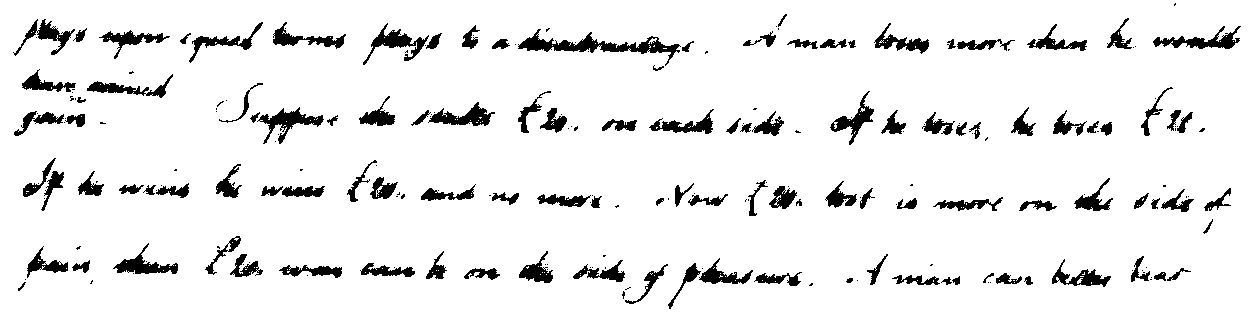 plays upon equal terms plays to a disadvantage. A man loses more than he would
have gained
gain. Suppose the stakes £20. on each side. If he loses, he loses £20.
If he wins he wins £20. and no more. Now £20. lost is more on the side of
pain, than £20. won can be on the side of pleasure. A man can better bear